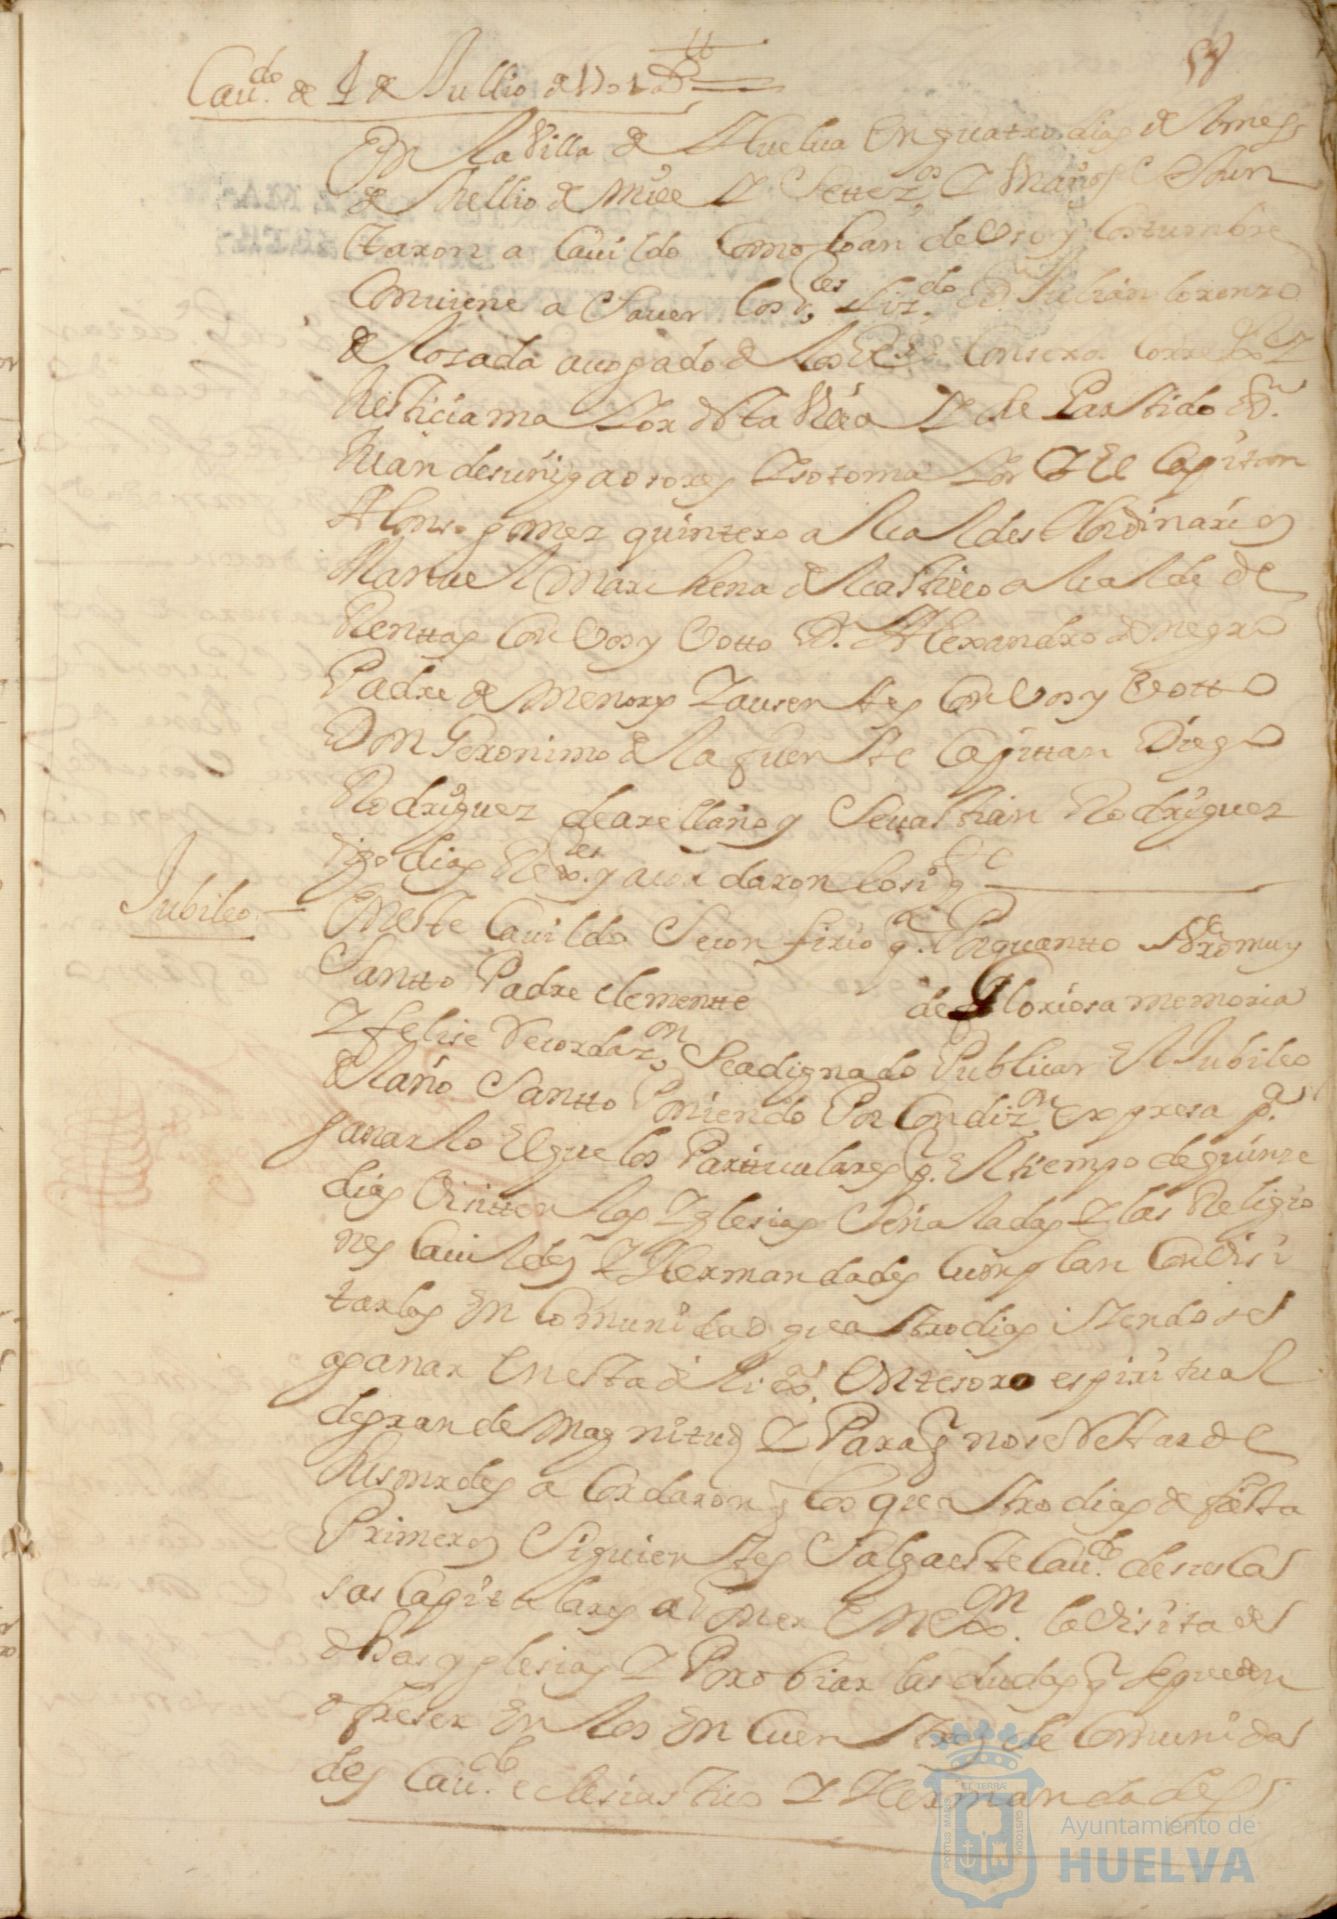 Cau.do de 4 de Jullio de 1701 Ds
En la Villa de Huelua En quatro dias del mes
de Jullio de mill Y Settez.os Y Vno se Jun
taron a Cauildo Como loan de Vso y Costumbre
Conuiene a Sauer los s.res Liz.do D.n Julian lorenzo
de losada auogado de los Rs Consexos Corre.or Y
Justicia ma Yor desta Villa Y de Partido D.n
Juan desuñiga osores Y sotoma Yor Y El Capitan
Alonso gomez quintero a lcaldes Ordinarios
Manuel Marchena del Castillo alcalde de
Renttas Con Vos y Votto D. Alexandro de negro
Padre de Menores Y ausentes Con Vos y Votto
Don Geronimo de la fuente Capittan Diego
Rodriguez de arellano y Seuastian Rodriguez
Rexi.res y acordaron lo sig.te
Jubileo
En este Cauildo Se confirio q. Por quantto Nro muy
Santto Padre clementte de Gloriosa memoria
Y felise Recordaz.on Seadignado Publicar El Jubileo
del año Santto Poniendo Por Condiz.on expresa p.a
ganarlo El que los Particulares p. El tiempo de quinze
dias Visitten las Yglesias Señaladas Y las Religio
nes Cauildes Y Hermandades Cumplan Con Visi
tarlas En Comunidad quatro dias i Yendose
a ganar En esta Un tesoro espiritual
de grande Magnitud Y Para q no se Retarde
Susmrdes a Cordaron q los quatro dias de fiesta
Primeros Siguientes Salga este Cau.do de sus Ca
sas Capitulares a la Visita de
dhas yglesias Y Para obiar las dudas q se pueden
ofreser En los En Cuentros de Comunida
des Cau.do eclesiastico Y Hermandades
Ayuntamiento de
HUELVA